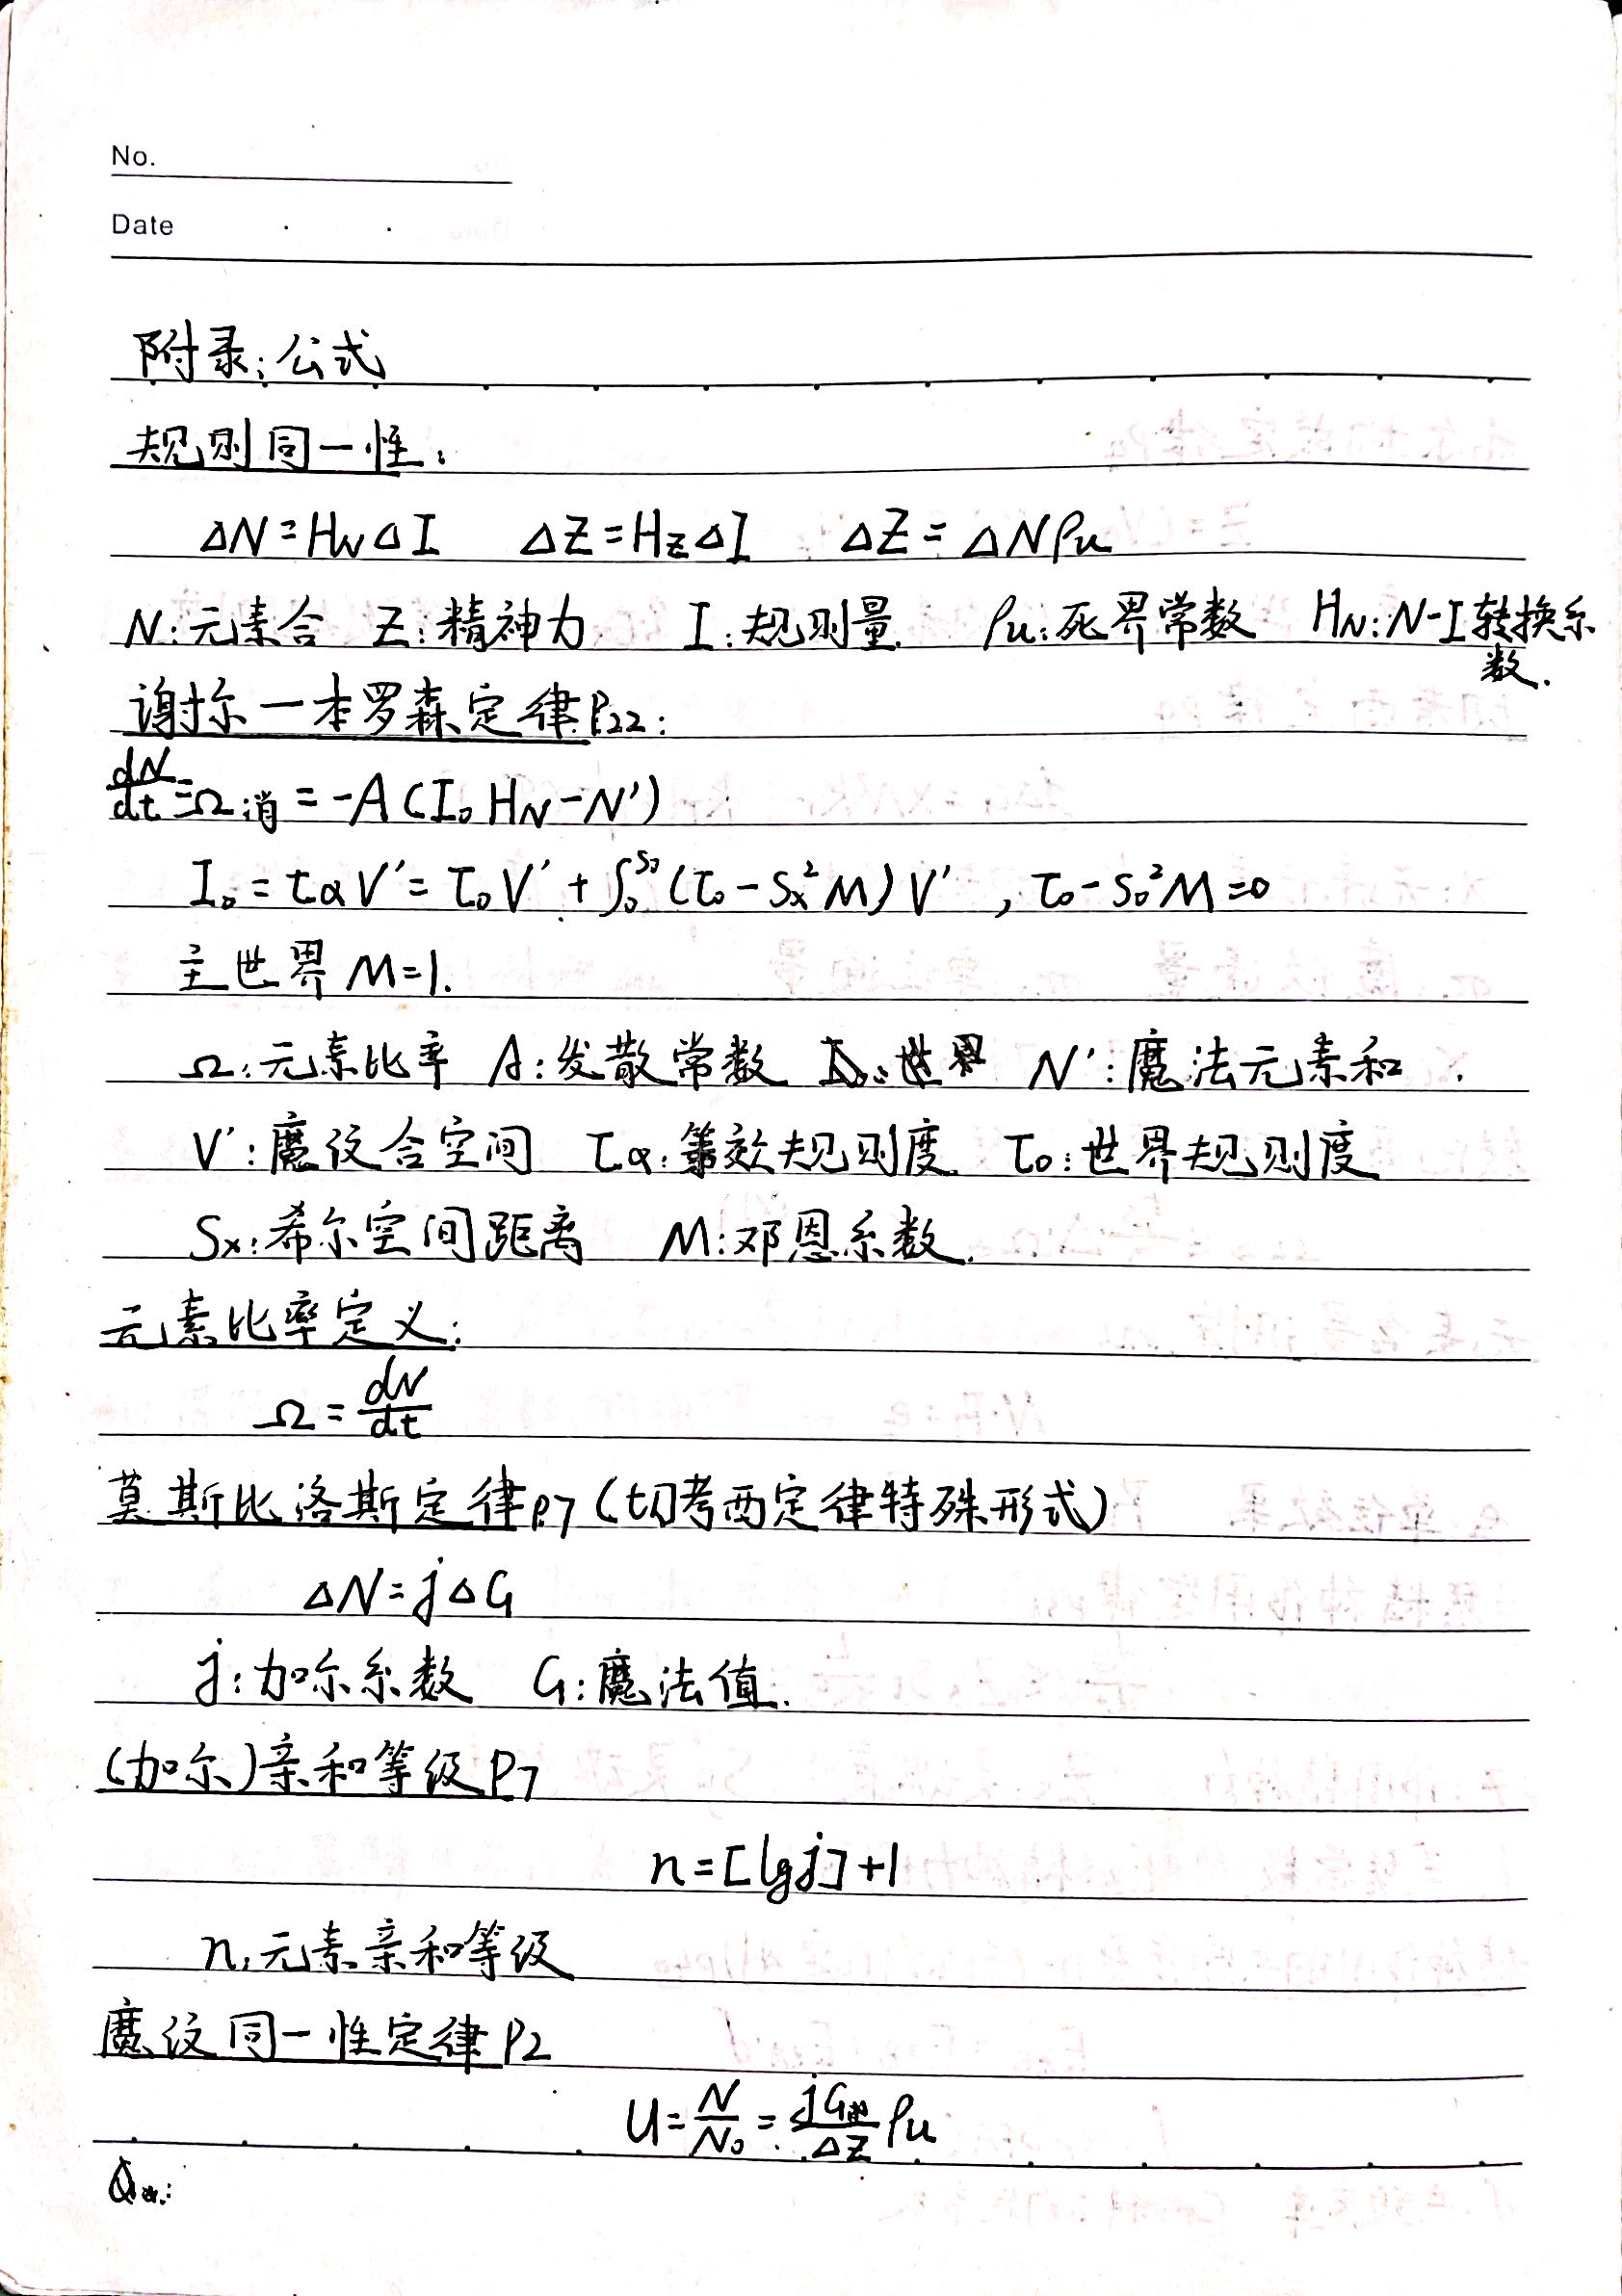 No.
Date
附录:公式
规则同一性:
ΔN=H_NΔI ΔZ=H_ZΔI ΔZ=ΔNρu
N:元素合 Z:精神力 I:规则量. ρu:死界常数 H_N:N-I转换系
数.
谢尔一本罗森定律P22:
dN/dt=Ω消=-A(I₀H_N-N')
I₀=ταV'=τ₀V'+∫₀^S₀(τ₀-Sx²M)V',τ₀-S₀²M=0
主世界M=1.
Ω:元素比率 A:发散常数 N':魔法元素和.
V':魔纹合空间 τα:等效规则度. τ₀:世界规则度
Sx:希尔空间距离 M:邓恩系数.
元素比率定义:
Ω=dN/dt
莫斯比洛斯定律P.7(切考西定律特殊形式)
ΔN=jΔG
j:加尔系数 G:魔法值.
(加尔)亲和等级P7
n=[lgj]+1
n:元素亲和等级
魔纹同一性定律P2
U=N/N₀=jG/ΔZ ρu